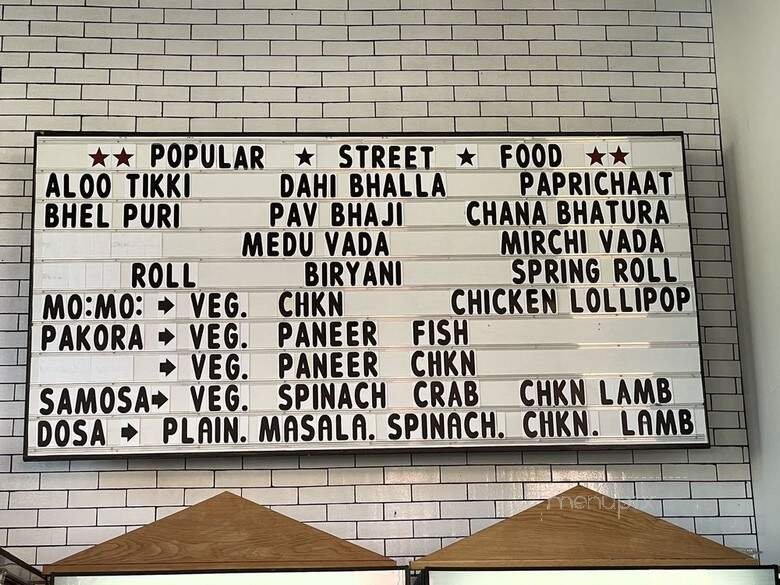 ★★ POPULAR ★ STREET ★ FOOD ★★
ALOO TIKKI DAHI BHALLA PAPRICHAAT
BHEL PURI PAV BHAJI CHANA BHATURA
MEDU VADA MIRCHI VADA
ROLL BIRYANI SPRING ROLL
MO:MO: → VEG. CHKN CHICKEN LOLLIPOP
PAKORA → VEG. PANEER FISH
→ VEG. PANEER CHKN
SAMOSA→ VEG. SPINACH CRAB CHKN LAMB
DOSA → PLAIN. MASALA. SPINACH. CHKN. LAMB